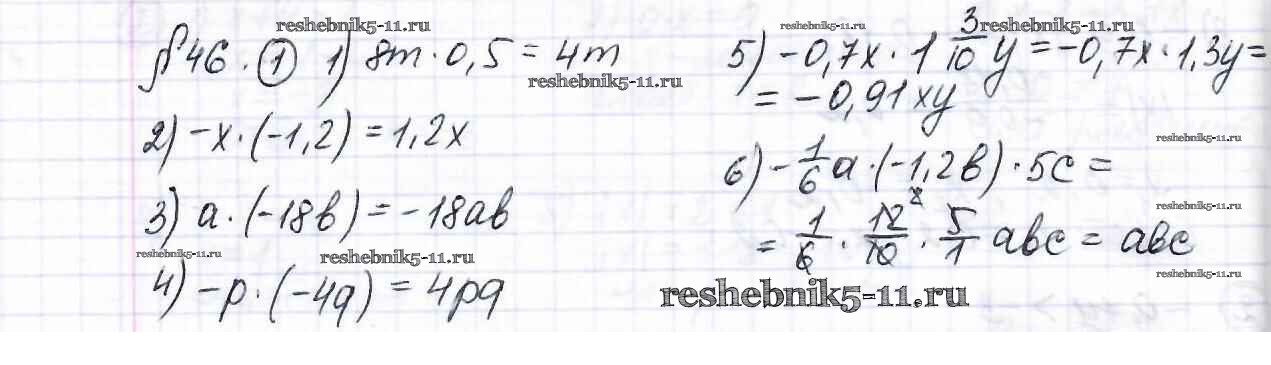 reshebnik5-11.ru
§ 46. ① 1) 8m · 0,5 = 4m
reshebnik5-11.ru
2) -x · (-1,2) = 1,2x
3) a · (-18b) = -18ab
reshebnik5-11.ru
reshebnik5-11.ru
4) -p · (-4q) = 4pq
reshebnik5-11.ru
reshebnik5-11.ru
5) -0,7x · 1 3/10 y = -0,7x · 1,3y =
= -0,91xy
reshebnik5-11.ru
6) -1/6 a · (-1,2b) · 5c =
reshebnik5-11.ru
= 1/6 · 12/10 · 5/1 abc = abc
2
reshebnik5-11.ru
reshebnik5-11.ru